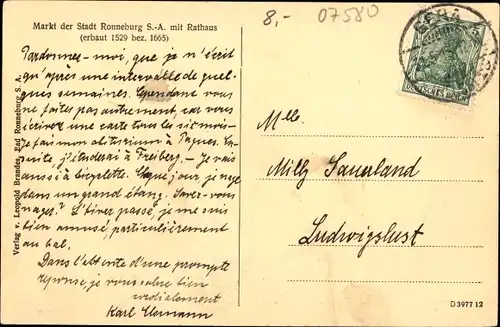 Markt der Stadt Ronneburg S.-A. mit Rathaus
(erbaut 1529 bez. 1665)
8,- 07580
GERA
DEUTSCHES REICH
Verlag v. Leopold Brandes, Bad Ronneburg S. A.
Pardonnez-moi, que je n'écrit
qu'après une intervalle de quel-
ques semaines. Cependant vous
ne faites pas autrement, car vous
écrivez une carte tous les six mois.-
Je fais mon abiturium à Pâques. En-
suite, j'étuderai à Freiberg. - Je vais
aussi à bicyclette. Chaque jour je nage
dans un grand étang. Savez-vous
nager? L'hiver passé, je me suis
bien amusé, particulièrement
au bal.
Dans l'attente d'une prompte
réponse, je vous salue bien
cordialement
Karl
Mlle.
Milly Sauerland
Ludwigslust
D 3977 12